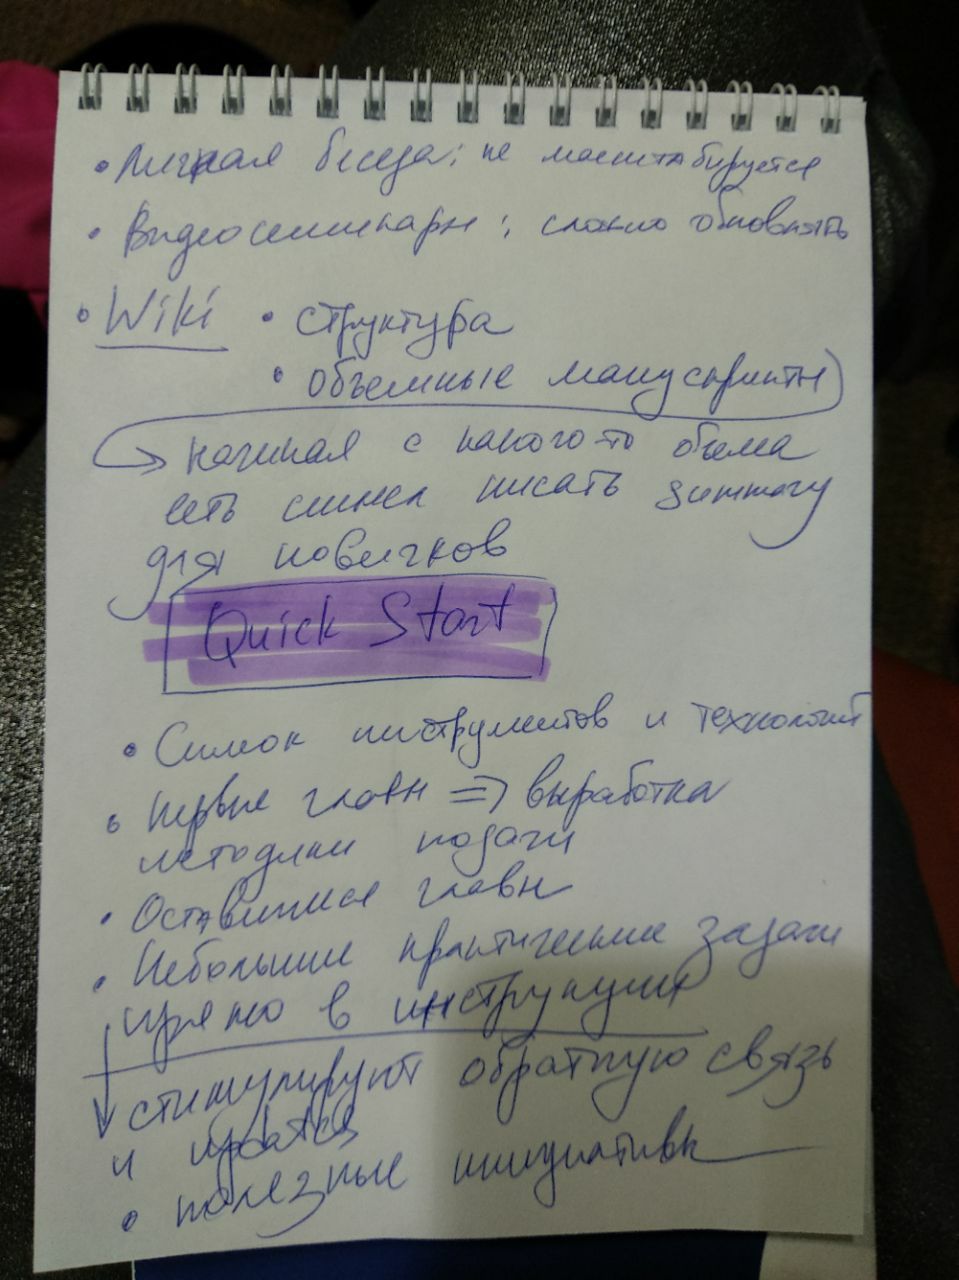 • Личная беседа: не масштабируется
• Видеосеминары: сложно обновлять
• Wiki • структура
• объемные манускрипты
→ начиная с какого-то объема
есть смысл писать summary
для новичков
Quick Start
• Список инструментов и технологий
• первые главы => выработка
методики подачи
• Оставшиеся главы
• Небольшие практические задачи
прямо в инструкции
стимулируют обратную связь
и
• полезные инициативы